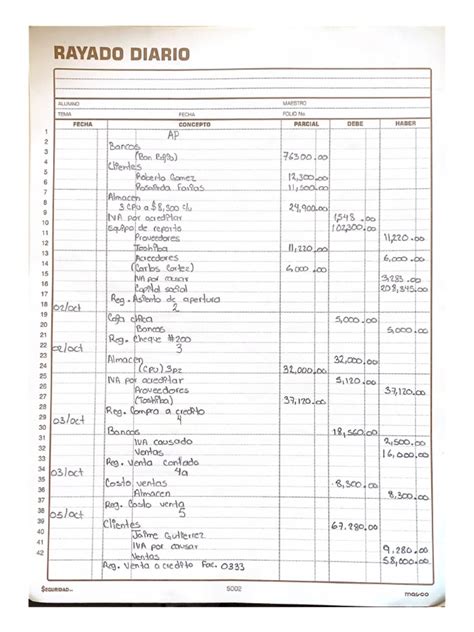 RAYADO DIARIO
ALUMNO MAESTRO
TEMA FECHA FOLIO No
FECHA CONCEPTO PARCIAL DEBE HABER
1 AP
2 Bancos
3 76300.00
4 Clientes
5 Roberto Gomez 12,300.00
6 11,500.00
7 Almacen
8 3 CPU a $8,300 c/u 24,900.00
9 IVA por acreditar 1,548.00
10 Equipo de reparto 102,300.00
11 Proveedores 11,220.00
12 Toshiba 11,220.00
13 Acreedores 6,000.00
14 (Carlos Cortez) 6,000.00
15 IVA por causar 3,283.00
16 Capital social 208,345.00
17 Reg. Asiento de apertura
18 02/oct 2
19 Caja chica 5,000.00
20 Bancos 5,000.00
21 Reg. Cheque #200
22 02/oct 3
23 Almacen 32,000.00
24 (CPU) 32,000.00
25 IVA por acreditar 5,120.00
26 Proveedores 37,120.00
27 (Toshiba) 37,120.00
28 Reg. Compra a credito
29 03/oct 4
30 Bancos 18,560.00
31 IVA causado 2,500.00
32 Ventas 16,000.00
33 Reg. Venta contado
34 03/oct 4a
35 Costo ventas 8,300.00
36 Almacen 8,300.00
37 Reg. Costo venta
38 05/oct 5
39 Clientes 67.280.00
40 Jaime Gutierrez
41 IVA por causar 9.280.00
42 Ventas 58,000.00
Reg. Venta a credito Fac. 0333
SEGURIDAD 5002 masco